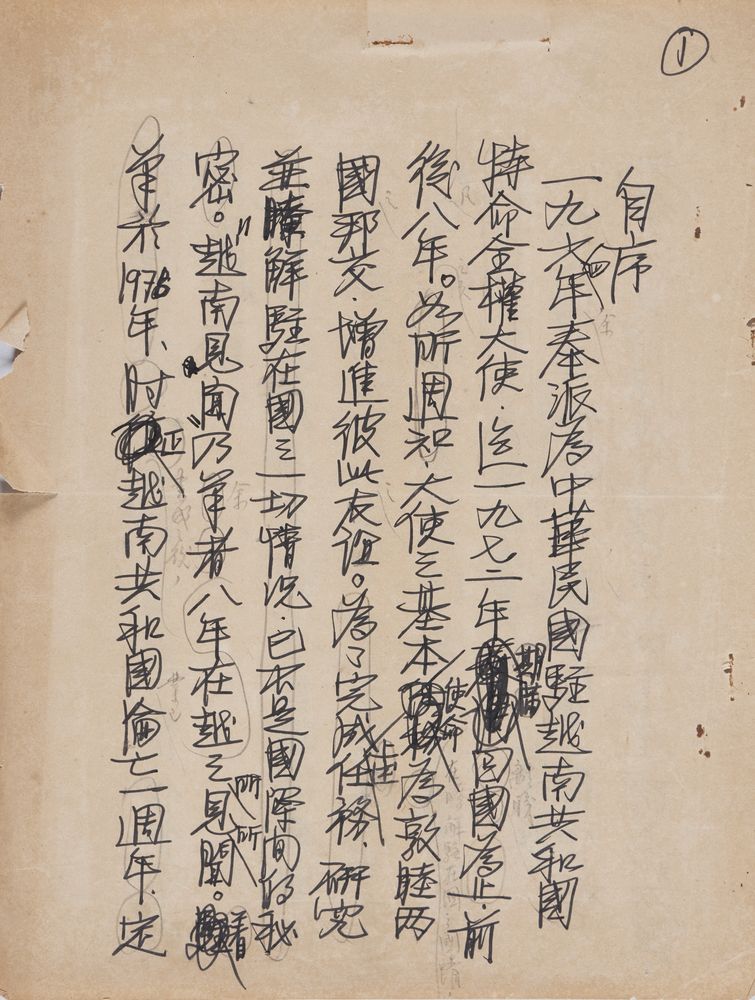 ①
自序
一九六四年奉派為中華民國駐越南共和國
特命全權大使，迄一九七二年期滿返國為止，前
後八年。如所週知，大使之基本使命為敦睦兩
國邦交，增進彼此友誼。為了完成上述任務，研究
並瞭解駐在國之一切情況，已不是國際間的秘
密。"越南見聞"乃筆者八年在越之所見所聞。著
筆於1976年，时正越南共和國淪亡一週年，定